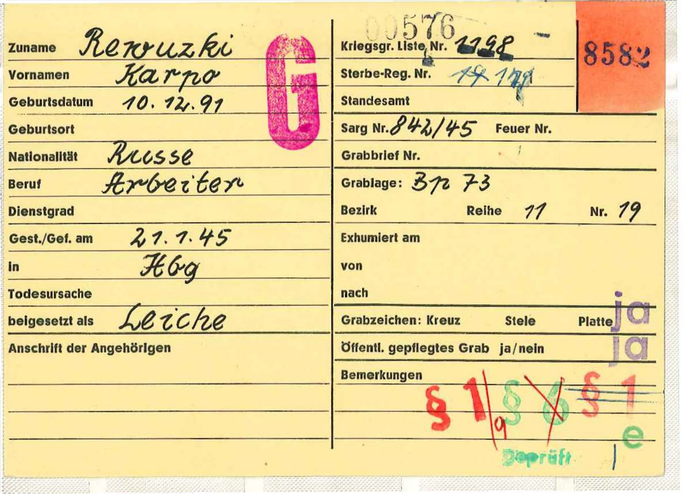 00576
Zuname Rewuzki
Vornamen Karpo
Geburtsdatum 10.12.91
Geburtsort
Nationalität Russe
Beruf Arbeiter
Dienstgrad
Gest./Gef. am 21.1.45
in Hbg
Todesursache
beigesetzt als Leiche
Anschrift der Angehörigen
G
Kriegsgr. Liste Nr. 1198
8582
Sterbe-Reg. Nr.
Standesamt
Sarg Nr. 842/45 Feuer Nr.
Grabbrief Nr.
Grablage: Bp 73
Bezirk Reihe 11 Nr. 19
Exhumiert am
von
nach
Grabzeichen: Kreuz Stele Platte ja
Öffentl. gepflegtes Grab ja/nein ja
Bemerkungen
§ 1/9 § 6 § 1
e
Geprüft